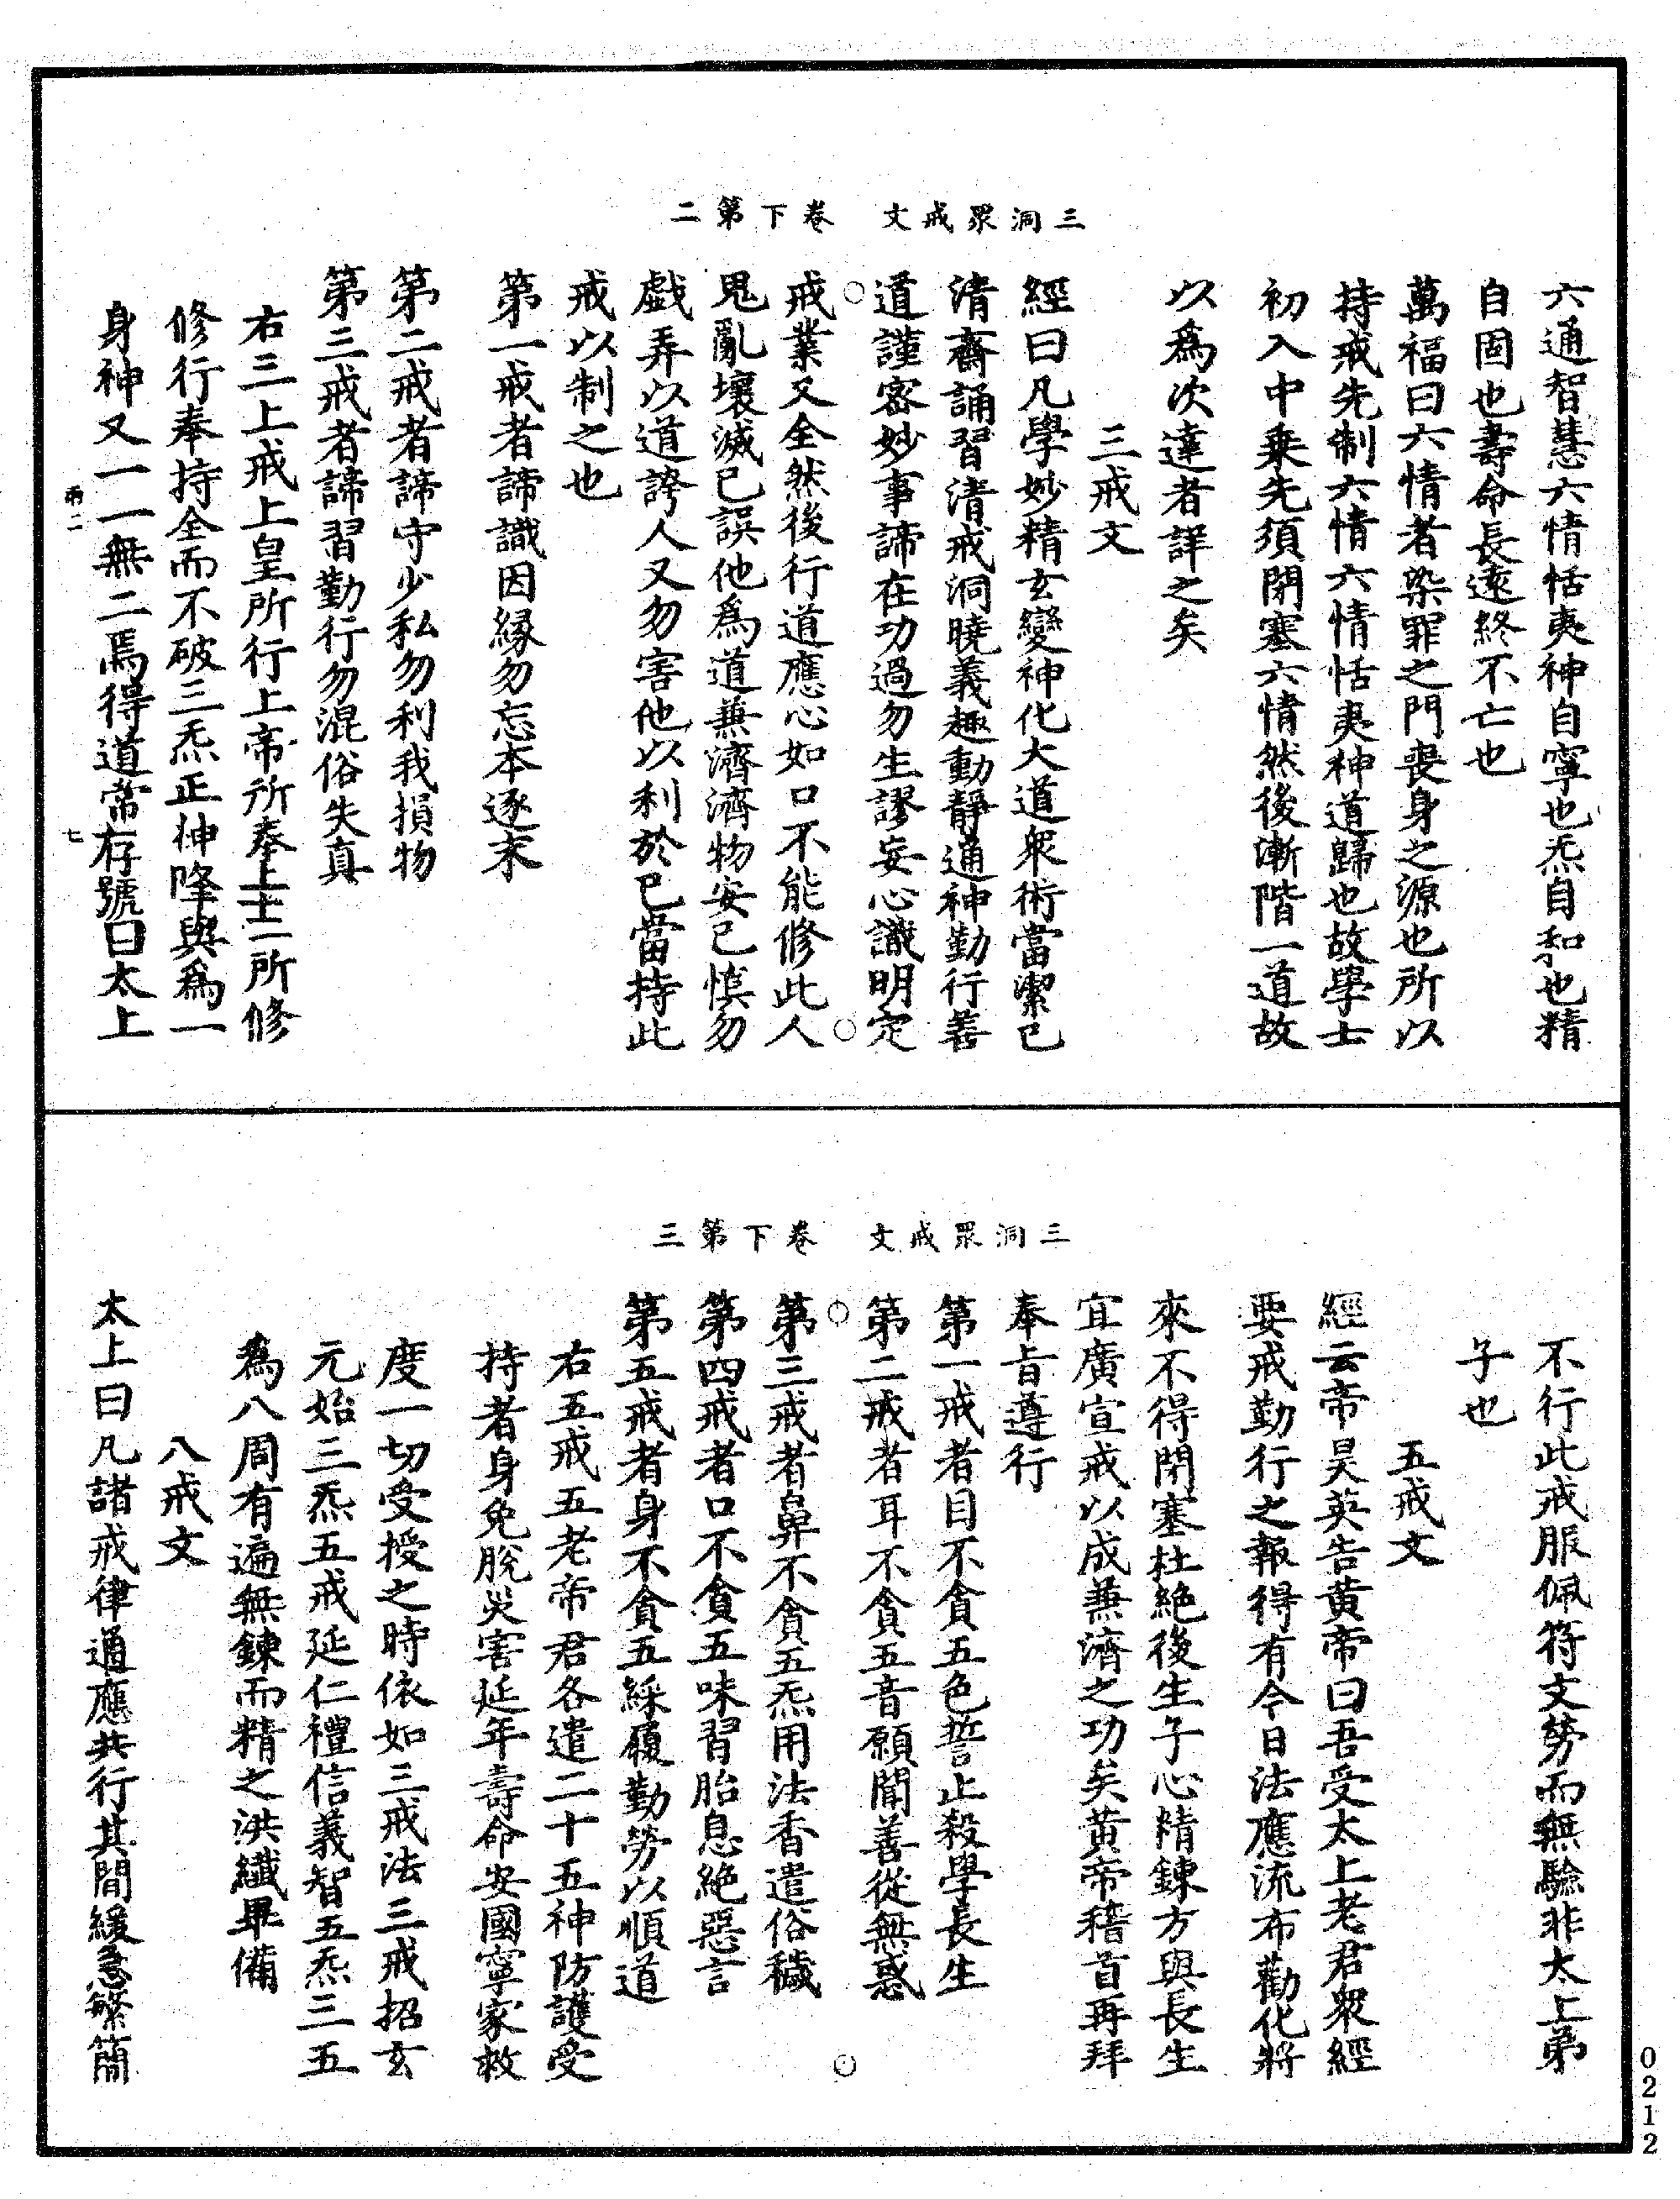 三洞眾戒文　卷下第二
六通智慧六情恬夷神自寧也炁自和也精
自固也壽命長遠終不亡也
萬福曰六情者染罪之門喪身之源也所以
持戒先制六情六情恬夷神道歸也故學士
初入中乗先須閉塞六情然後漸階一道故
以爲次達者詳之矣
三戒文
經曰凡學妙精玄變神化大道衆術當潔己
清齋誦習清戒洞曉義趣動靜通神勤行善
道謹密妙事諦在功過勿生謬妄心識明定
戒業又全然後行道應心如口不能修此人
鬼亂壞滅已誤他爲道兼濟濟物安己慎勿
戲弄以道誇人又勿害他以利於己當持此
戒以制之也
第一戒者諦識因緣勿忘本逐末
第二戒者諦守少私勿利我損物
第三戒者諦習勤行勿混俗失真
右三上戒上皇所行上帝所奉上士所修
修行奉持全而不破三炁正神降與爲一
身神又一一無二焉得道常存號曰太上
兩二　七
三洞眾戒文　卷下第三
不行此戒服佩符文勞而無驗非太上弟
子也
五戒文
經云帝昊英告黄帝曰吾受太上老君衆經
要戒勤行之報得有今日法應流布勸化將
來不得閉塞杜絶後生子心精鍊方與長生
宜廣宣戒以成兼濟之功矣黄帝稽首再拜
奉旨遵行
第一戒者目不貪五色誓止殺學長生
第二戒者耳不貪五音願聞善從無惑
第三戒者鼻不貪五炁用法香遣俗穢
第四戒者口不貪五味習胎息絶惡言
第五戒者身不貪五綵履勤勞以順道
右五戒五老帝君各遣二十五神防護受
持者身免脫災害延年壽命安國寧家救
度一切受授之時依如三戒法三戒招玄
元始三炁五戒延仁禮信義智五炁三五
爲八周有遍無鍊而精之洪纖畢備
八戒文
太上曰凡諸戒律通應共行其間緩急繁簡
0212